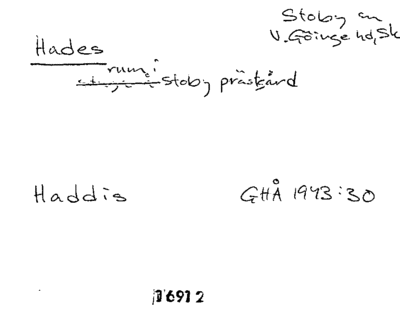 Stoby sn
V. Göinge hd, Sk
Hades
rum i
Stoby prästgård
Haddis GHÅ 1943:30
16912